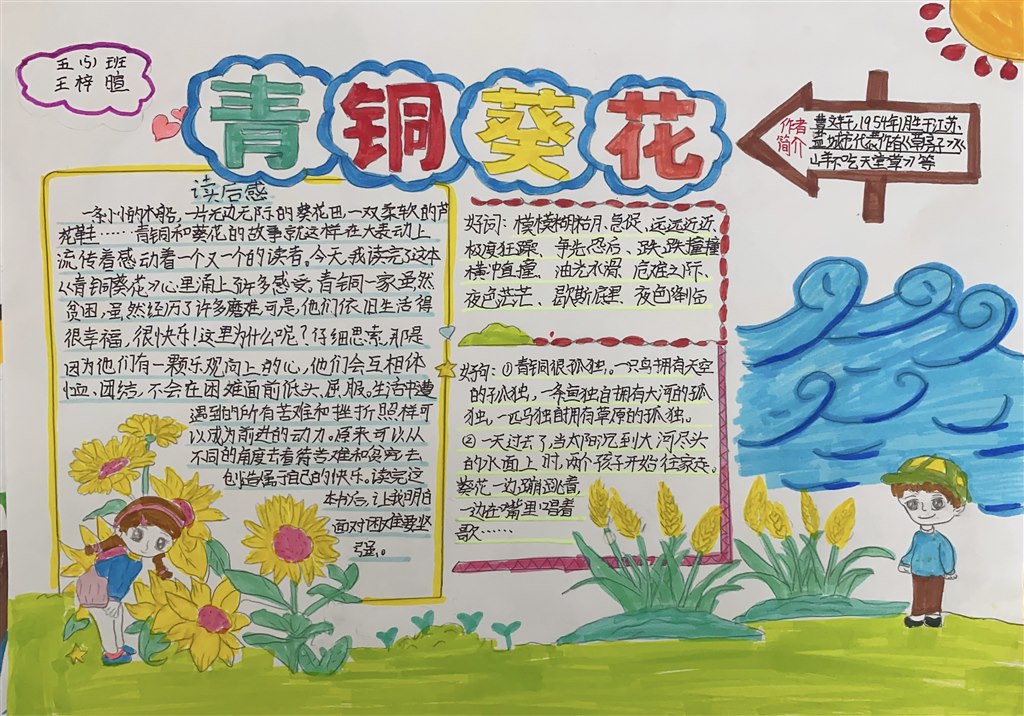 五(5)班
王梓暄
青铜葵花
作者
简介
曹文轩,1954年1月生于江苏
盐城市代表作品《草房子》《
山羊不吃天堂草》等
读后感
一条小小的木船,一片无边无际的葵花田,一双柔软的芦
花鞋……青铜和葵花的故事就这样在大麦地上
流传着感动着一个又一个的读者,今天,我读完这本
《青铜葵花》心里涌上了许多感受。青铜一家虽然
贫困,虽然经历了许多磨难可是,他们依旧生活得
很幸福,很快乐!这里为什么呢?仔细思索,那是
因为他们有一颗乐观向上的心,他们会互相体
恤、团结,不会在困难面前低头、屈服。生活中遭
遇到的所有苦难和挫折照样可
以成为前进的动力。原来可以从
不同的角度去看待苦难和贫穷去
创造属于自己的快乐。读完这
本书后,让我明白
面对困难要坚
强。
好词:模模糊糊枯月、急促、远远近近、
极度狂躁、争先恐后、跌跌撞撞
横冲直撞、油光水滑、危难之际、
夜色茫茫、歇斯底里、夜色降临
好句:①青铜很孤独。一只鸟拥有天空
的孤独,一条鱼独自拥有大河的孤
独,一匹马独自拥有草原的孤独。
②一天过去了当太阳沉到大河尽头
的水面上时,两个孩子开始往家走。
葵花一边蹦跳着,
一边在嘴里唱着
歌……